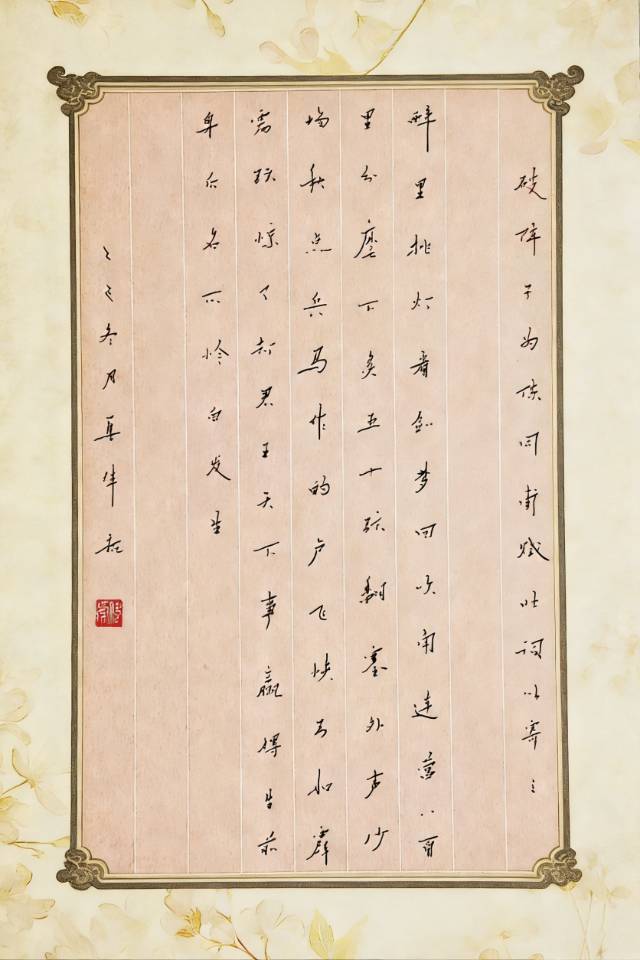 破阵子为陈同甫赋壮词以寄之
醉里挑灯看剑梦回吹角连营八百
里分麾下炙五十弦翻塞外声沙
场秋点兵马作的卢飞快弓如霹
雳弦惊了却君王天下事赢得生前
身后名可怜白发生
乙巳冬月真伟